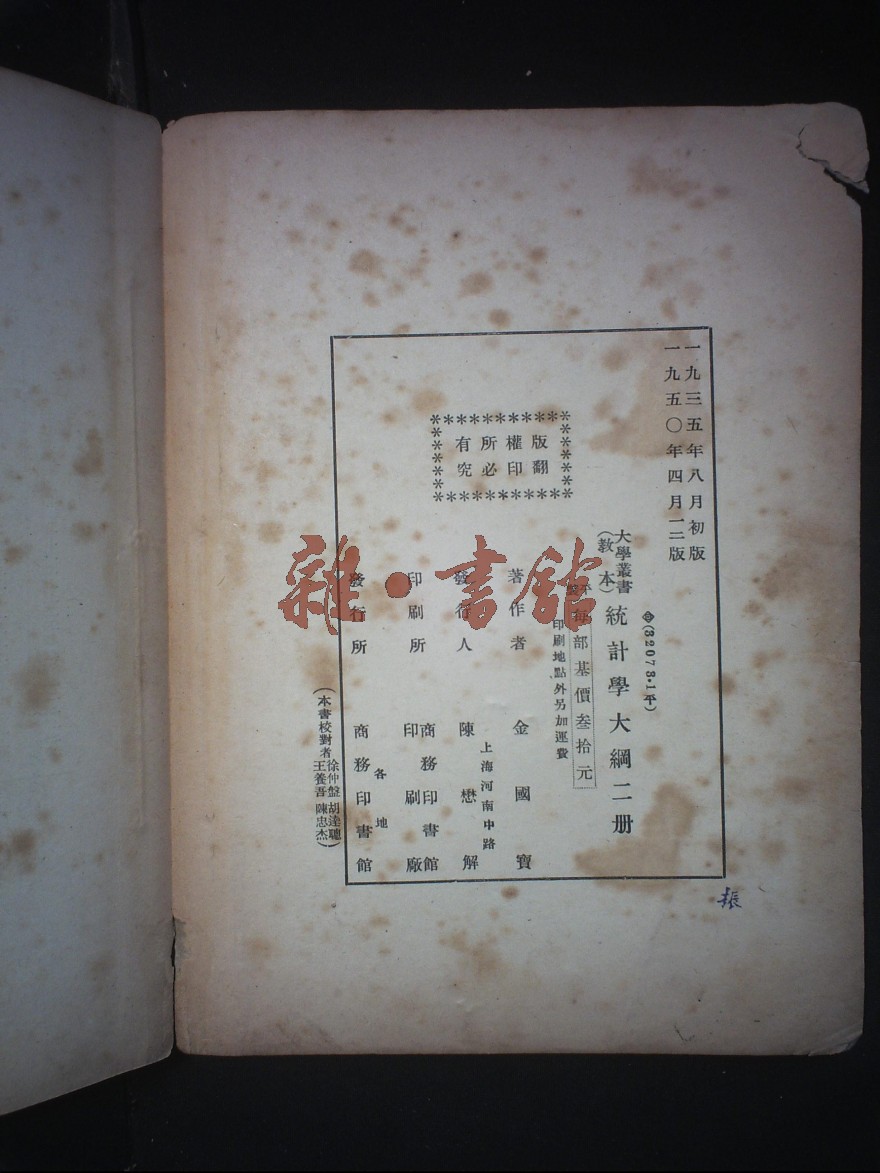 一九三五年八月初版
一九五〇年四月一二版
(32073·1平)
大學叢書
(教本)
統計學大綱二册
每部基價叁拾元
印刷地點外另加運費
版權所有
翻印必究
著作者 金國寶
發行人 陳懋解
上海河南中路
印刷所 商務印書館
印刷廠
發行所 商務印書館
各地
(本書校對者 徐仲盤 胡達聰
王養吾 陳忠杰)
雜·書館